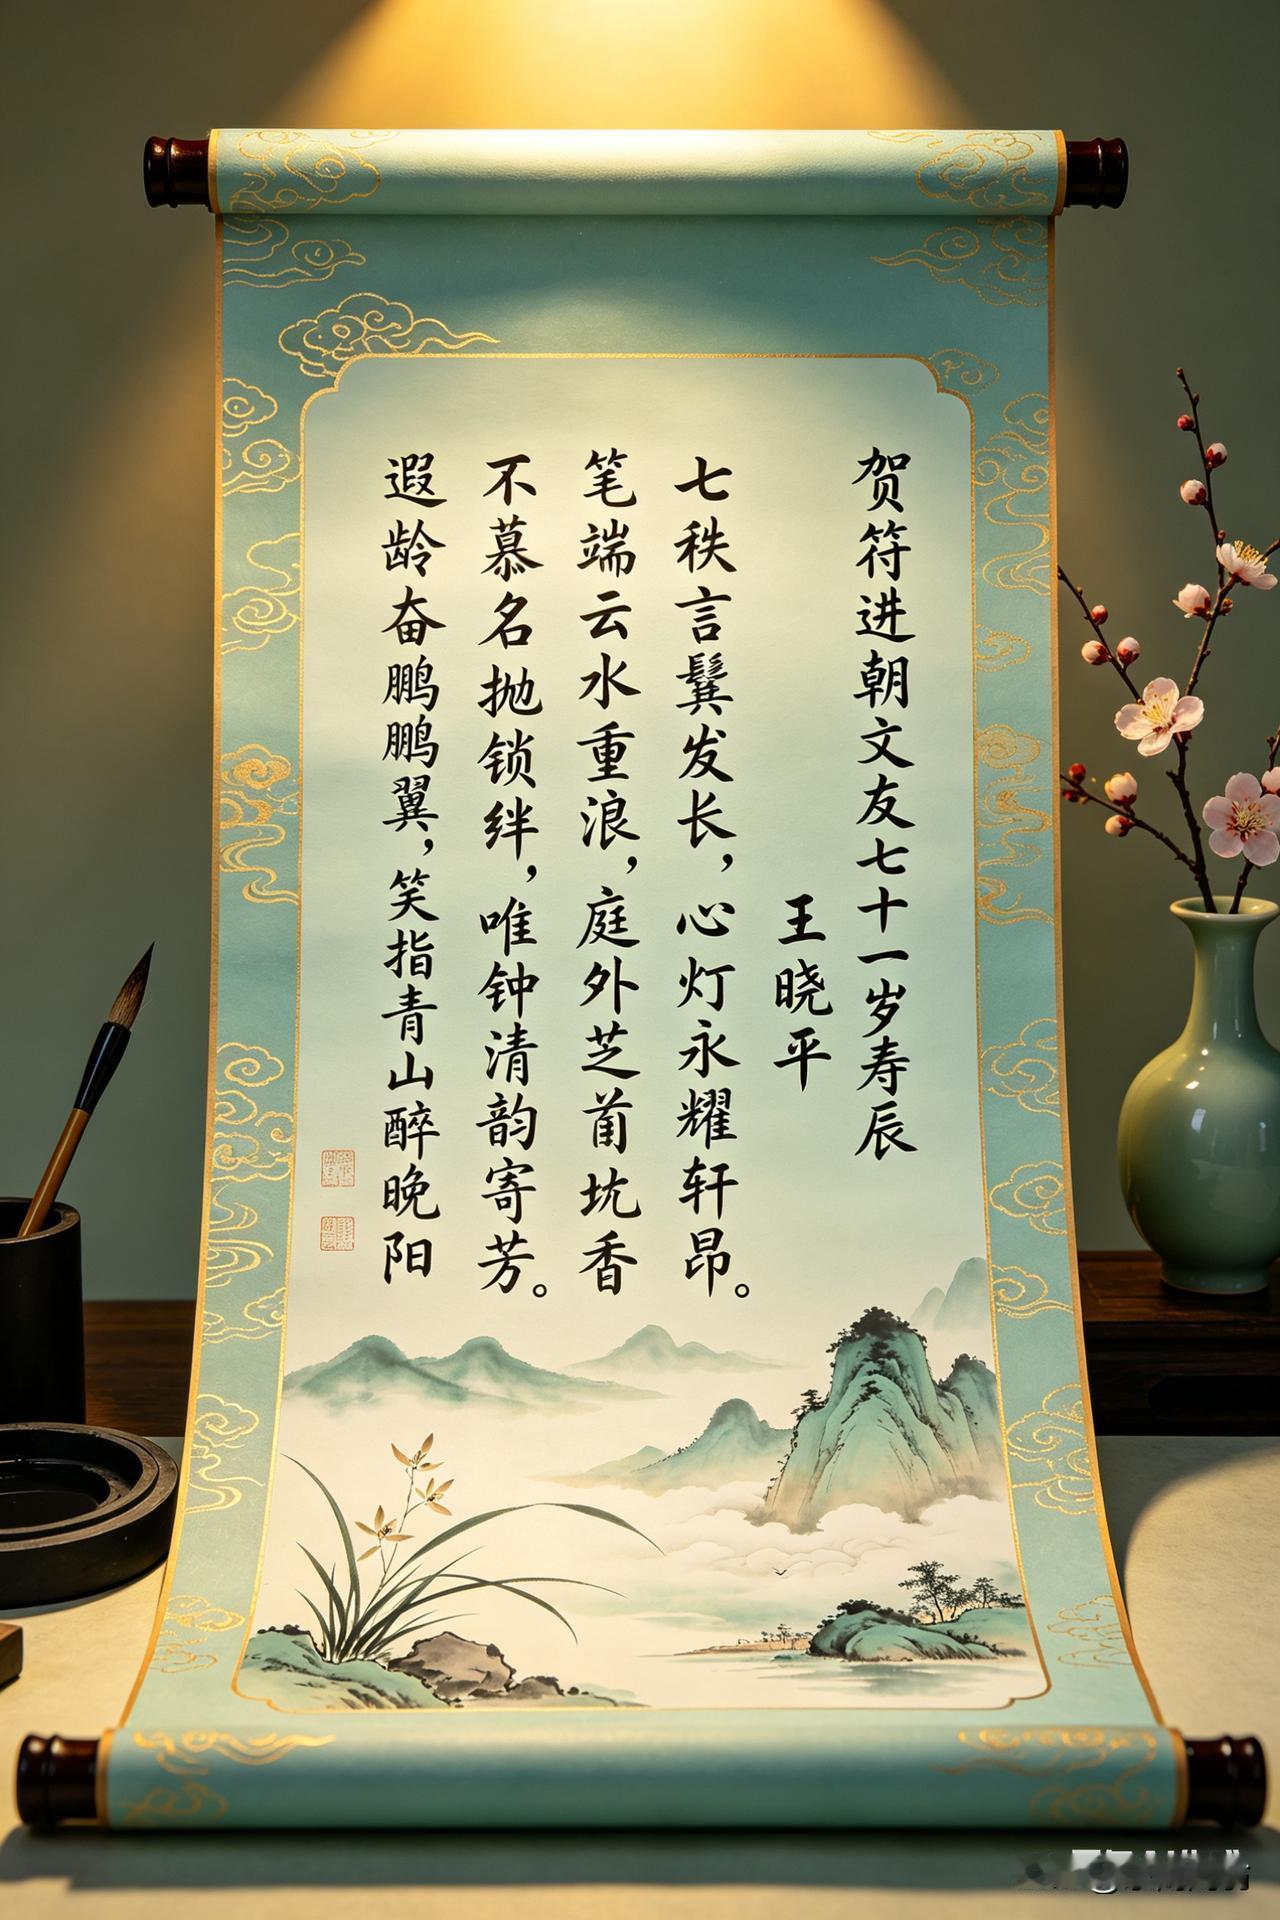 贺符进朝文友七十一岁寿辰
王晓平
七秩言鬓发长，心灯永耀轩昂。
笔端云水重浪，庭外芝莆坑香
不慕名抛锁绊，唯钟清韵寄芳。
遐龄奋鹏鹏翼，笑指青山醉晚阳